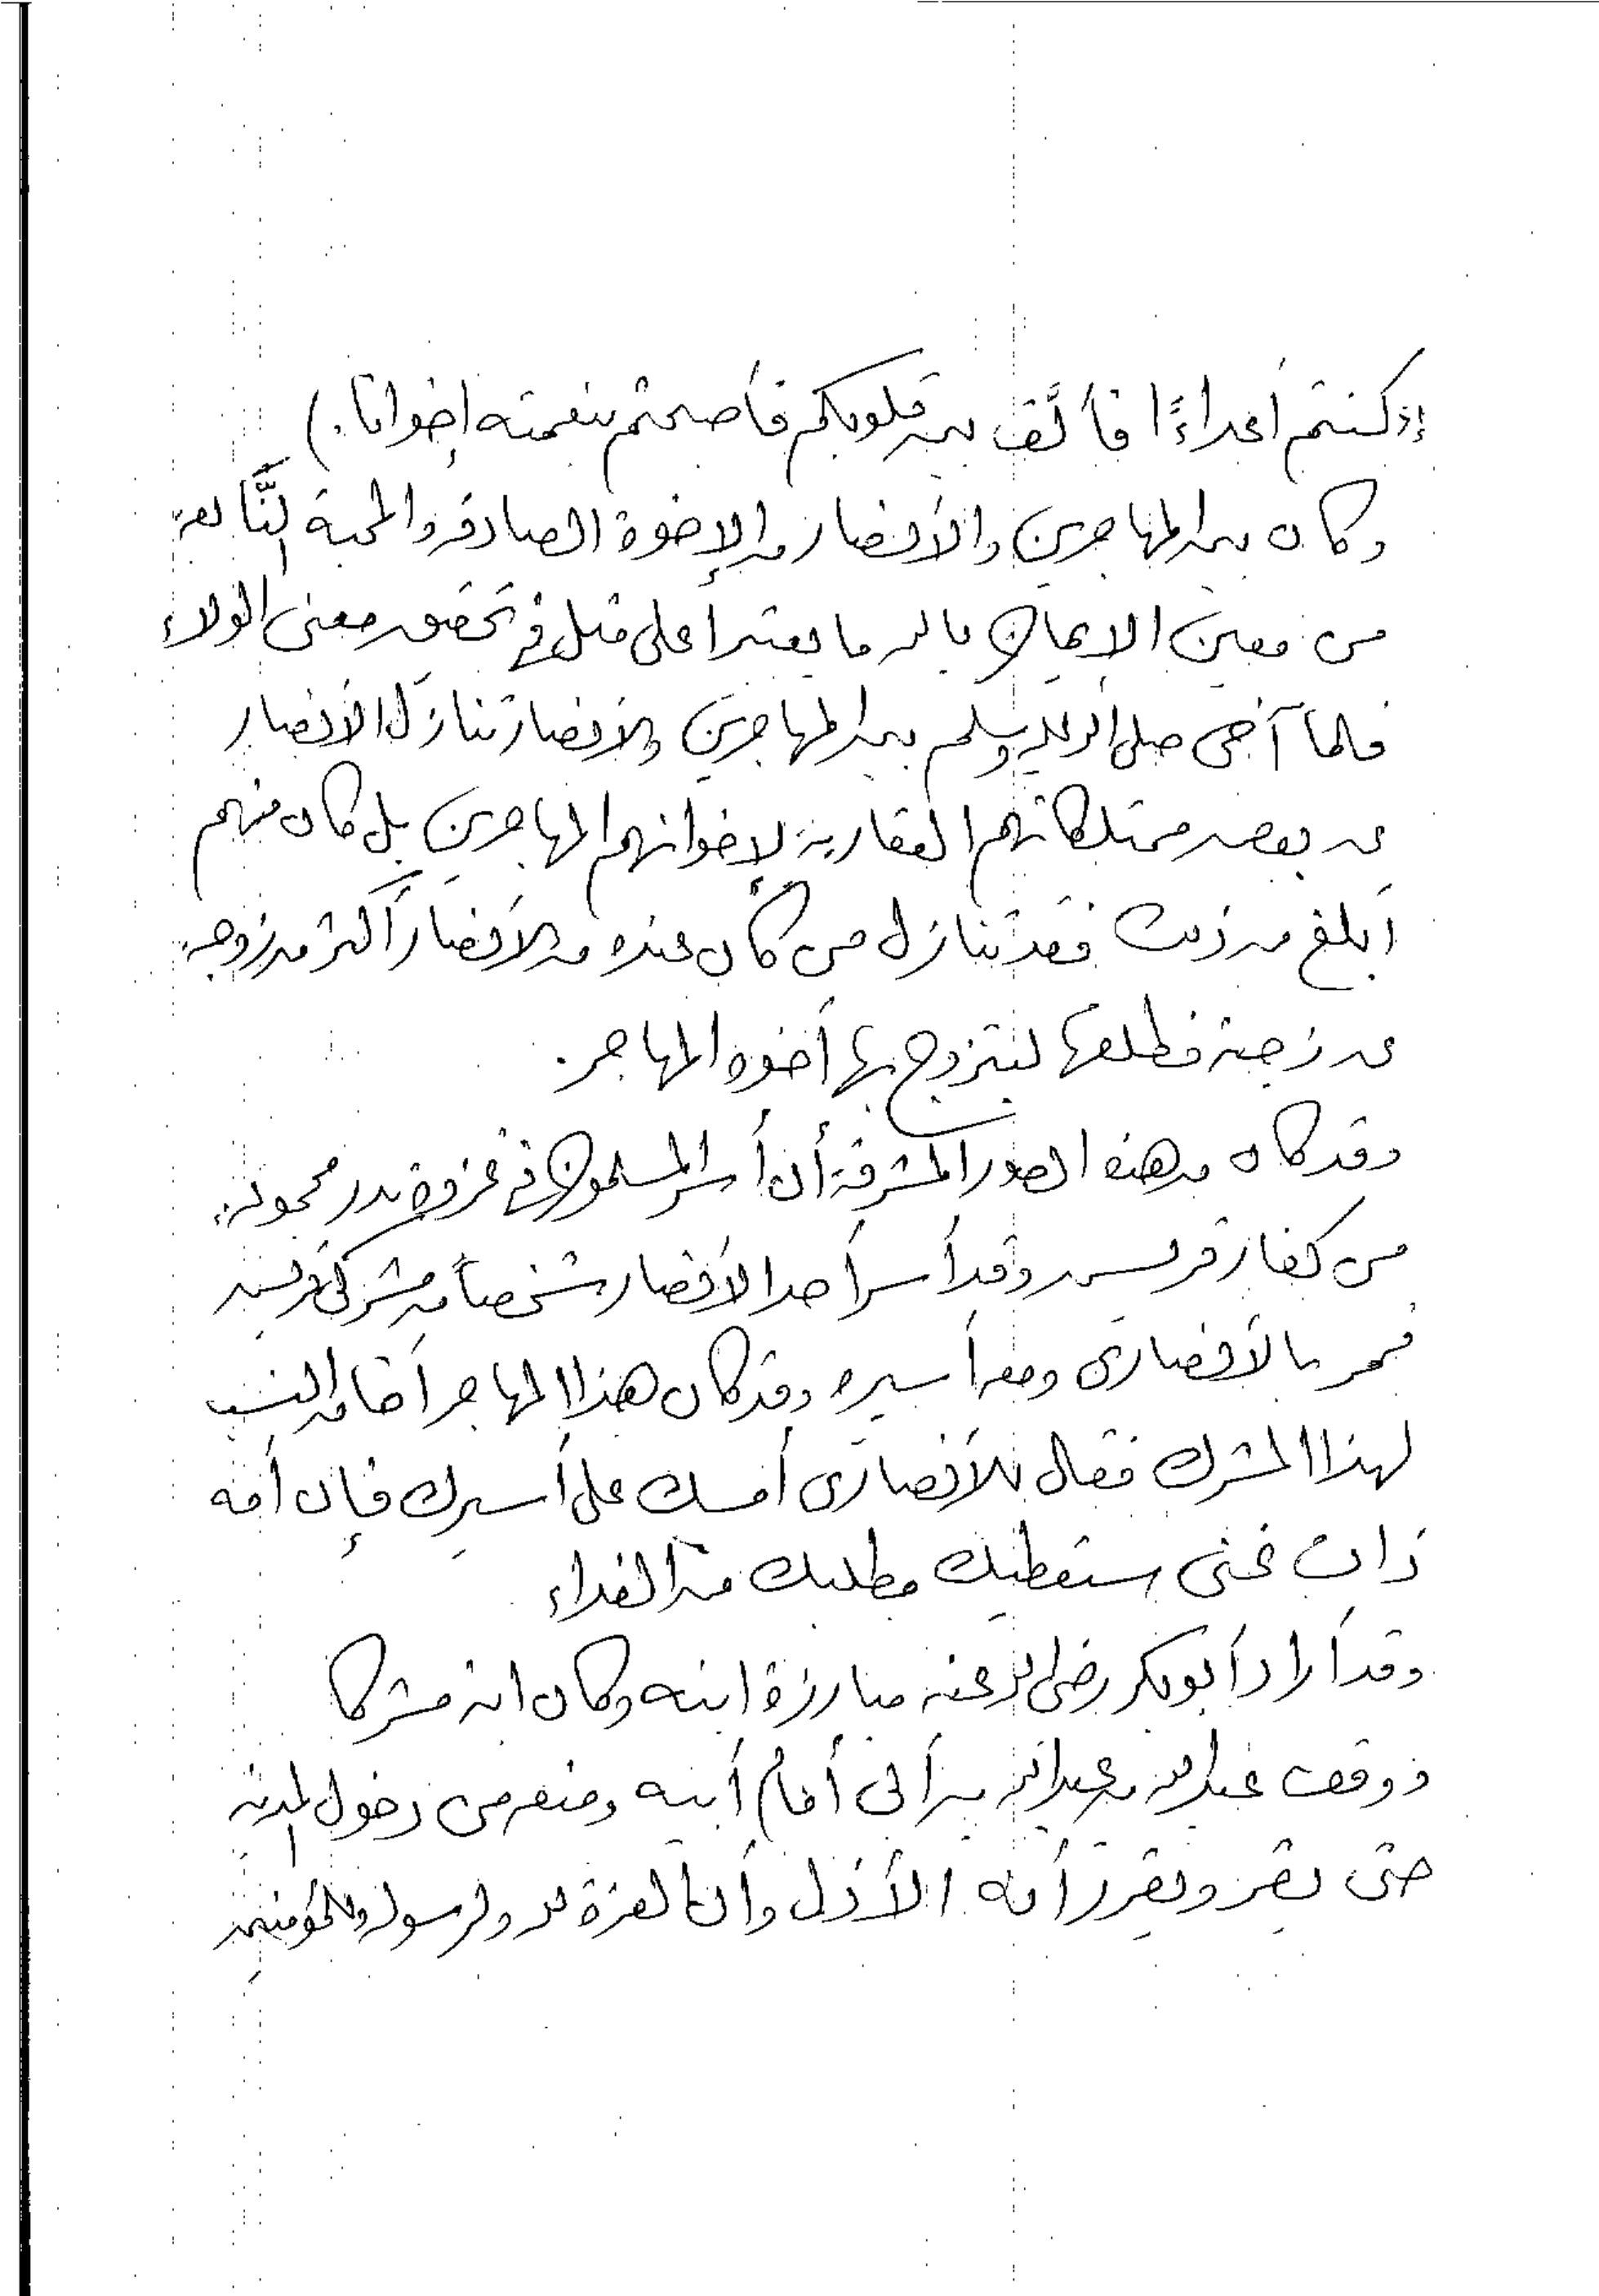 إذ كنتم أعداءً فألَّف بين قلوبكم فأصبحتم بنعمته إخوانا.)
وكان بين المهاجرين والأنصار من الإخوة الصادقة والمحبة النَّابعة
من معين الإيمان بالله ما يعتبر أعلى مثل في تحقيق معنى الولاء
فلما آخى صلى الله عليه وسلم بين المهاجرين والأنصار تنازل الأنصار
عن بعض ممتلكاتهم العقارية لإخوانهم المهاجرين بل كان منهم
أبلغ من ذلك فقد تنازل من كان عنده من الأنصار أكثر من زوجة
عن زوجته فطلقها ليتزوج بها أخوه المهاجر.
وقد كان من هذه الصور المشرقة أن أسر المسلمون في غزوة بدر مجموعة
من كفار قريش وقد أسر أحد الأنصار شخصاً من مشركي قريش
فمر بالأنصارى ومعه أسيره وقد كان هذا المهاجر أخا من النسب
لهذا المشرك فقال للأنصارى أمسك على أسيرك فإن أمه
ذات غنى ستعطيك مطلبك من الفداء
وقد أراد أبو بكر رضى الله عنه مبارزة ابنه وكان ابنه مشركا
ووقف عبد الله بن عبد الله بن أبى أمام أبيه ومنعه من دخول المدينة
حتى يقر ويقرر أنه الأذل وأن العزة لله ولرسوله وللمؤمنين